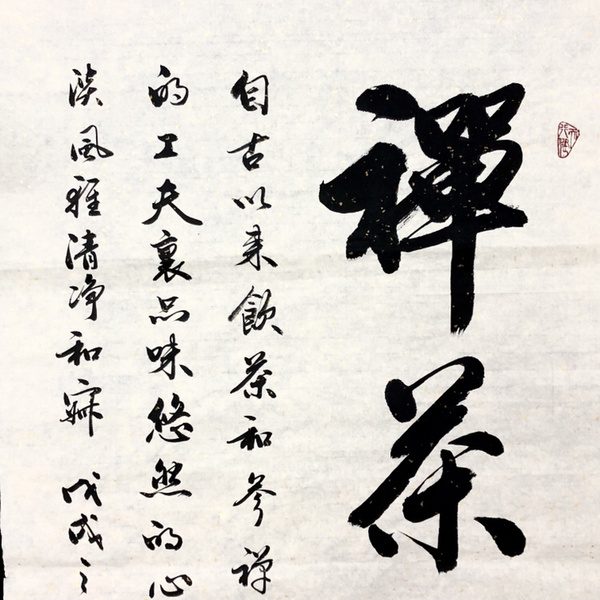 禪茶
自古以来飲茶和参禅
的工夫裏品味悠然的心
淡風雅清净和寂 戊戌之